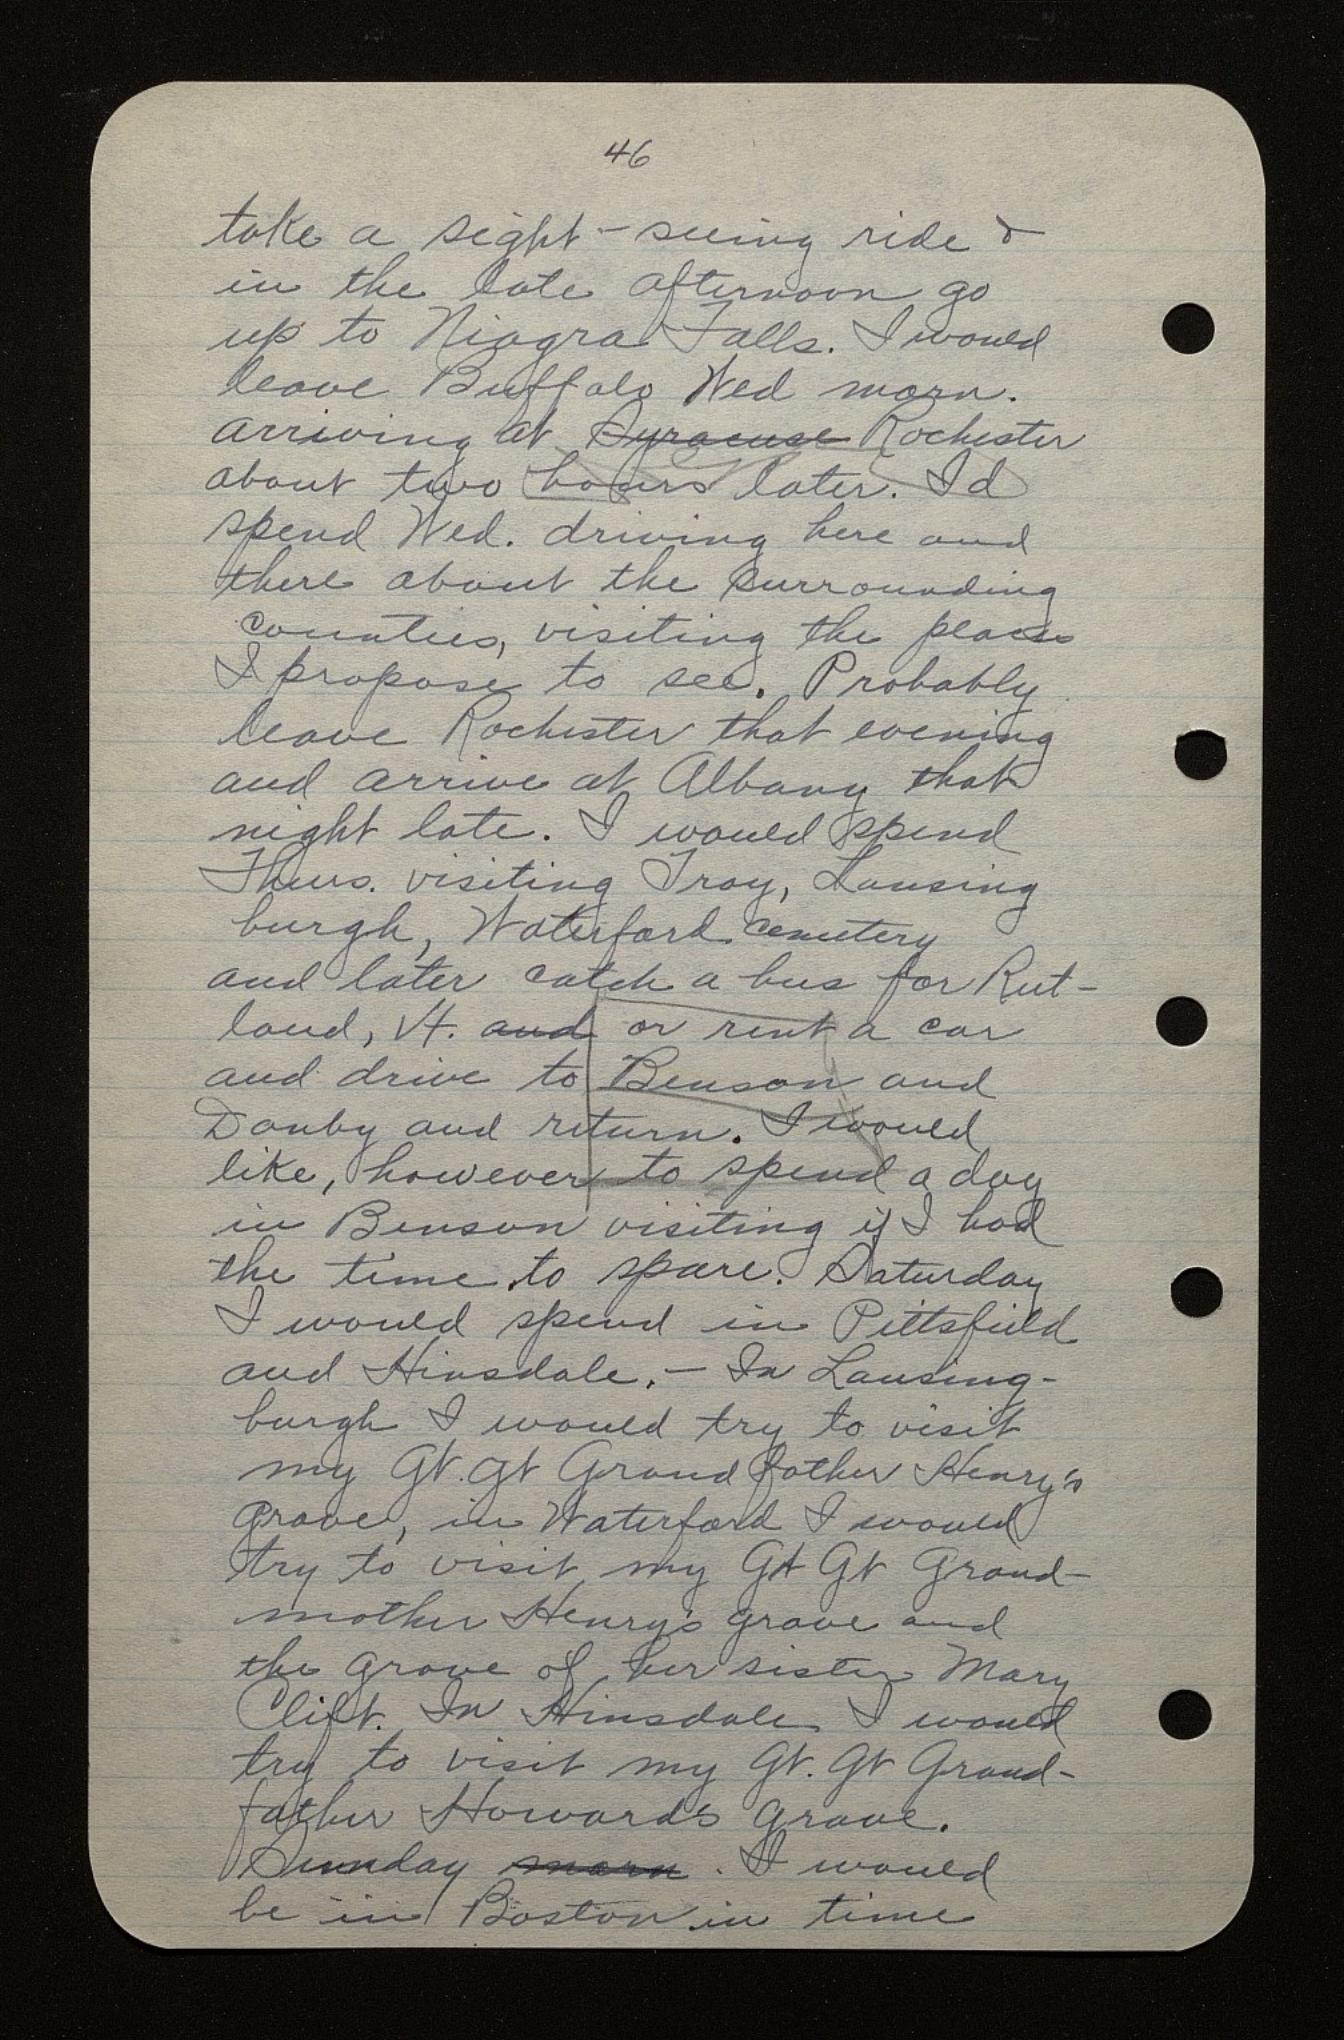 46
take a sight-seeing ride &
in the late afternoon go
up to Niagra Falls. I would
leave Buffalo Wed morn.
arriving at Syracuse Rochester
about two hours later. I'd
spend Wed. driving here and
there about the surrounding
counties, visiting the places
I propose to see. Probably
leave Rochester that evening
and arrive at Albany that
night late. I would spend
Thurs. visiting Troy, Lansing
burgh, Waterford cemetery
and later catch a bus for Rut-
land, Vt. and or rent a car
and drive to Benson and
Danby and return. I would
like, however to spend a day
in Benson visiting if I had
the time to spare. Saturday
I would spend in Pittsfield
and Hinsdale. - In Lansing-
burgh I would try to visit
my Gt. gt Grandfather Henry's
grave, in Waterford I would
try to visit my Gt Gt Grand-
mother Henry's grave and
the grave of her sister Mary
Clift. In Hinsdale I would
try to visit my Gt. Gt Grand-
father Howard's grave.
Sunday morn. I would
be in Boston in time